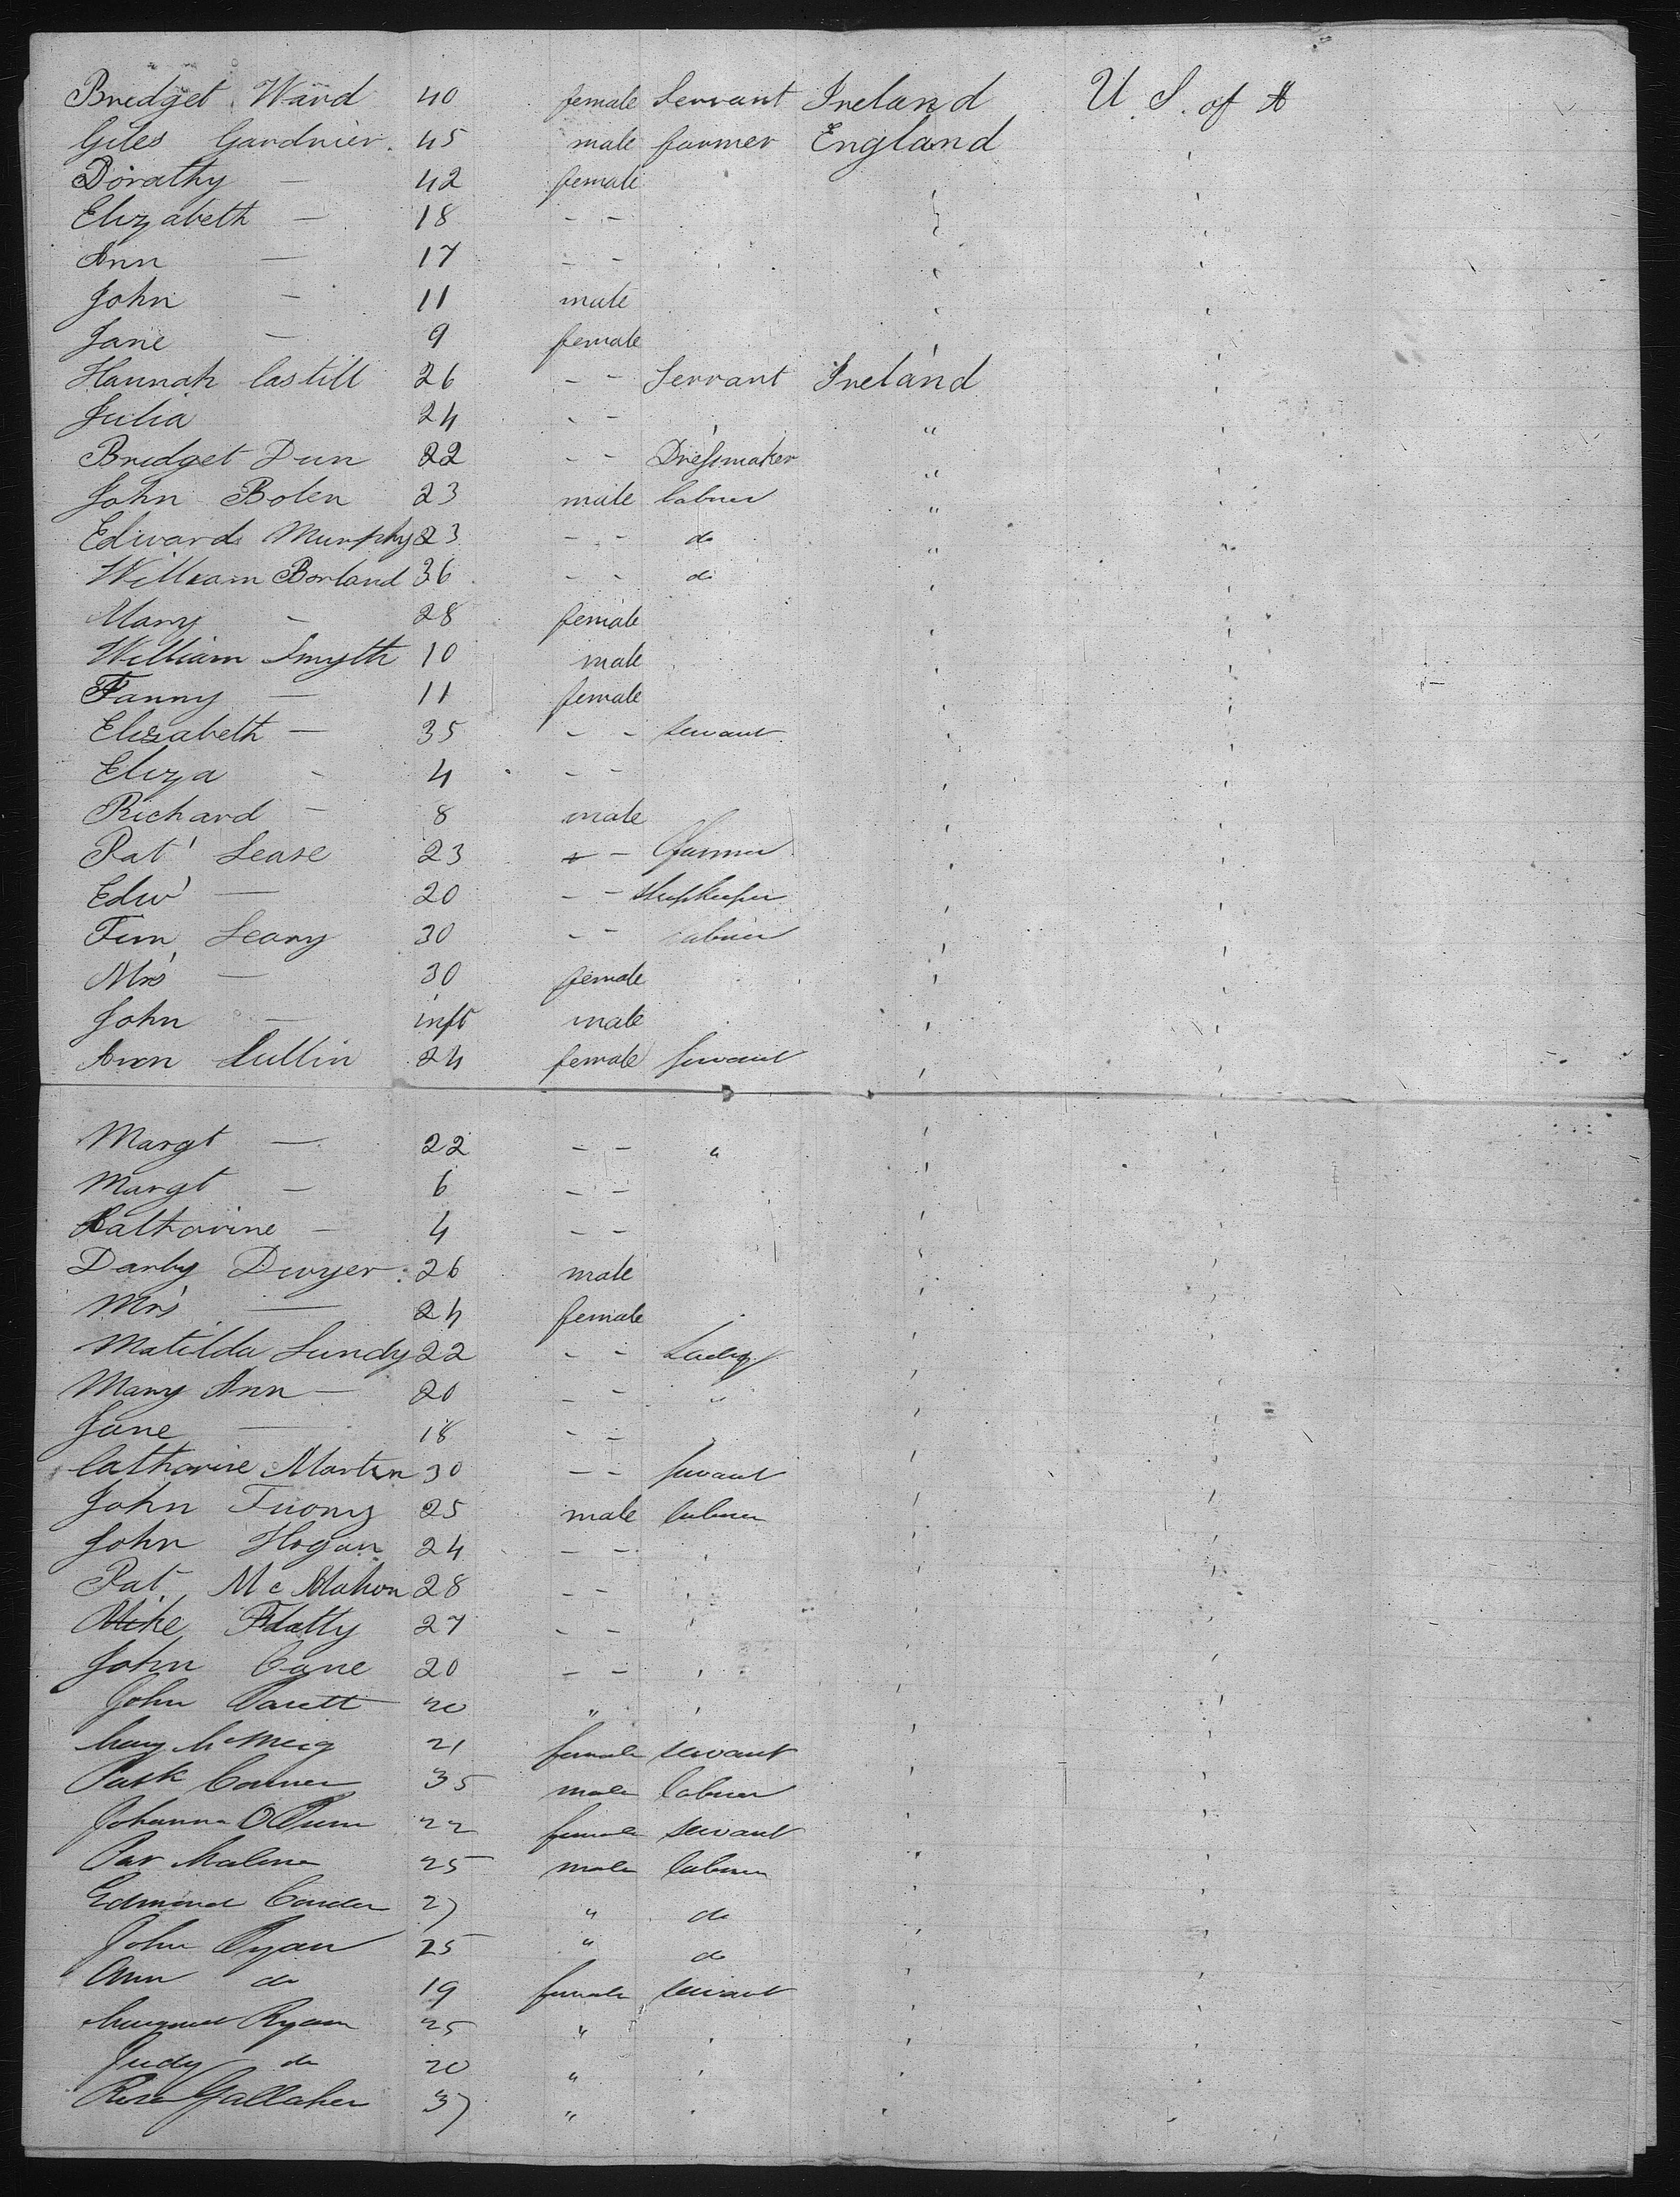 Bridget Ward 40 female Servant Ireland U. S. of A
Giles Gardnier. 45 male farmer England '
Dorathy — 42 female ' '
Elizabeth — 18 - - ' '
Ann — 17 - - ' '
John — 11 male ' '
Jane — 9 female ' '
Hannah Castill 26 - - Servant Ireland '
Julia 24 - - ' " '
Bridget Dun 22 - - Dressmaker " '
John Bolen 23 male labner " '
Edward Murphy 23 - - do " '
William Borland 36 - - do ' '
Mary - 28 female ' '
William Smyth 10 male ' '
Fanny — 11 female ' '
Elizabeth — 35 - - servant ' '
Eliza - 4 - - ' '
Richard - 8 male ' '
Pat' Lease 23 - - farmer ' '
Edw' — 20 - - Shopkeeper ' '
Tim Leary 30 - - labner ' '
Mrs — 30 female ' '
John — inft male ' '
Ann Cullin 24 female servant ' '
Margt — 22 - - " ' '
Margt — 6 - - ' '
Catharine — 4 - - ' '
Darby Dwyer. 26 male ' '
Mrs — 24 female ' '
Matilda Lundy 22 - - Lady ' '
Mary Ann — 20 - - " ' '
Jane — 18 - - ' ' '
Catharine Martin 30 - - servant ' '
John Tuomy 25 male labner ' '
John Hogan 24 - - ' ' '
Pat Mc Mahon 28 - - ' ' '
Mike Flatty 27 - - ' ' '
John Cane 20 - - ' ' '
John 20 " ' ' '
Mary 21 female servant ' '
35 male labner ' '
Johanna 22 female servant ' '
Pat Malone 25 male labner ' '
Edmond 27 " do ' '
John Ryan 25 " do ' '
Ann do 19 female servant ' '
Margaret Ryan 25 " ' ' '
Judy do 20 " ' ' '
Rose Gallaher 37 " ' '